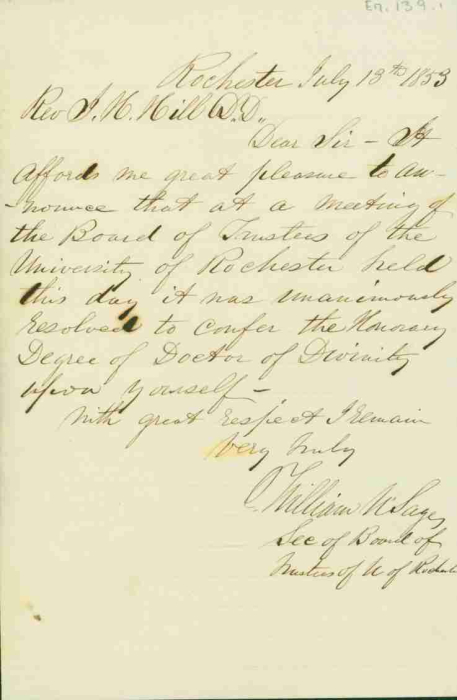 En. 139.1
Rochester July 13th 1853
Rev J. H. Hill D.D.,
Dear Sir – It
affords me great pleasure to an-
-nounce that at a meeting of
the Board of Trustees of the
University of Rochester held
this day it was unanimously
resolved to confer the Honorary
Degree of Doctor of Divinity
upon yourself –
With great respect I remain
Very truly
William N. Sage
Sec of Board of
Trustees of U of